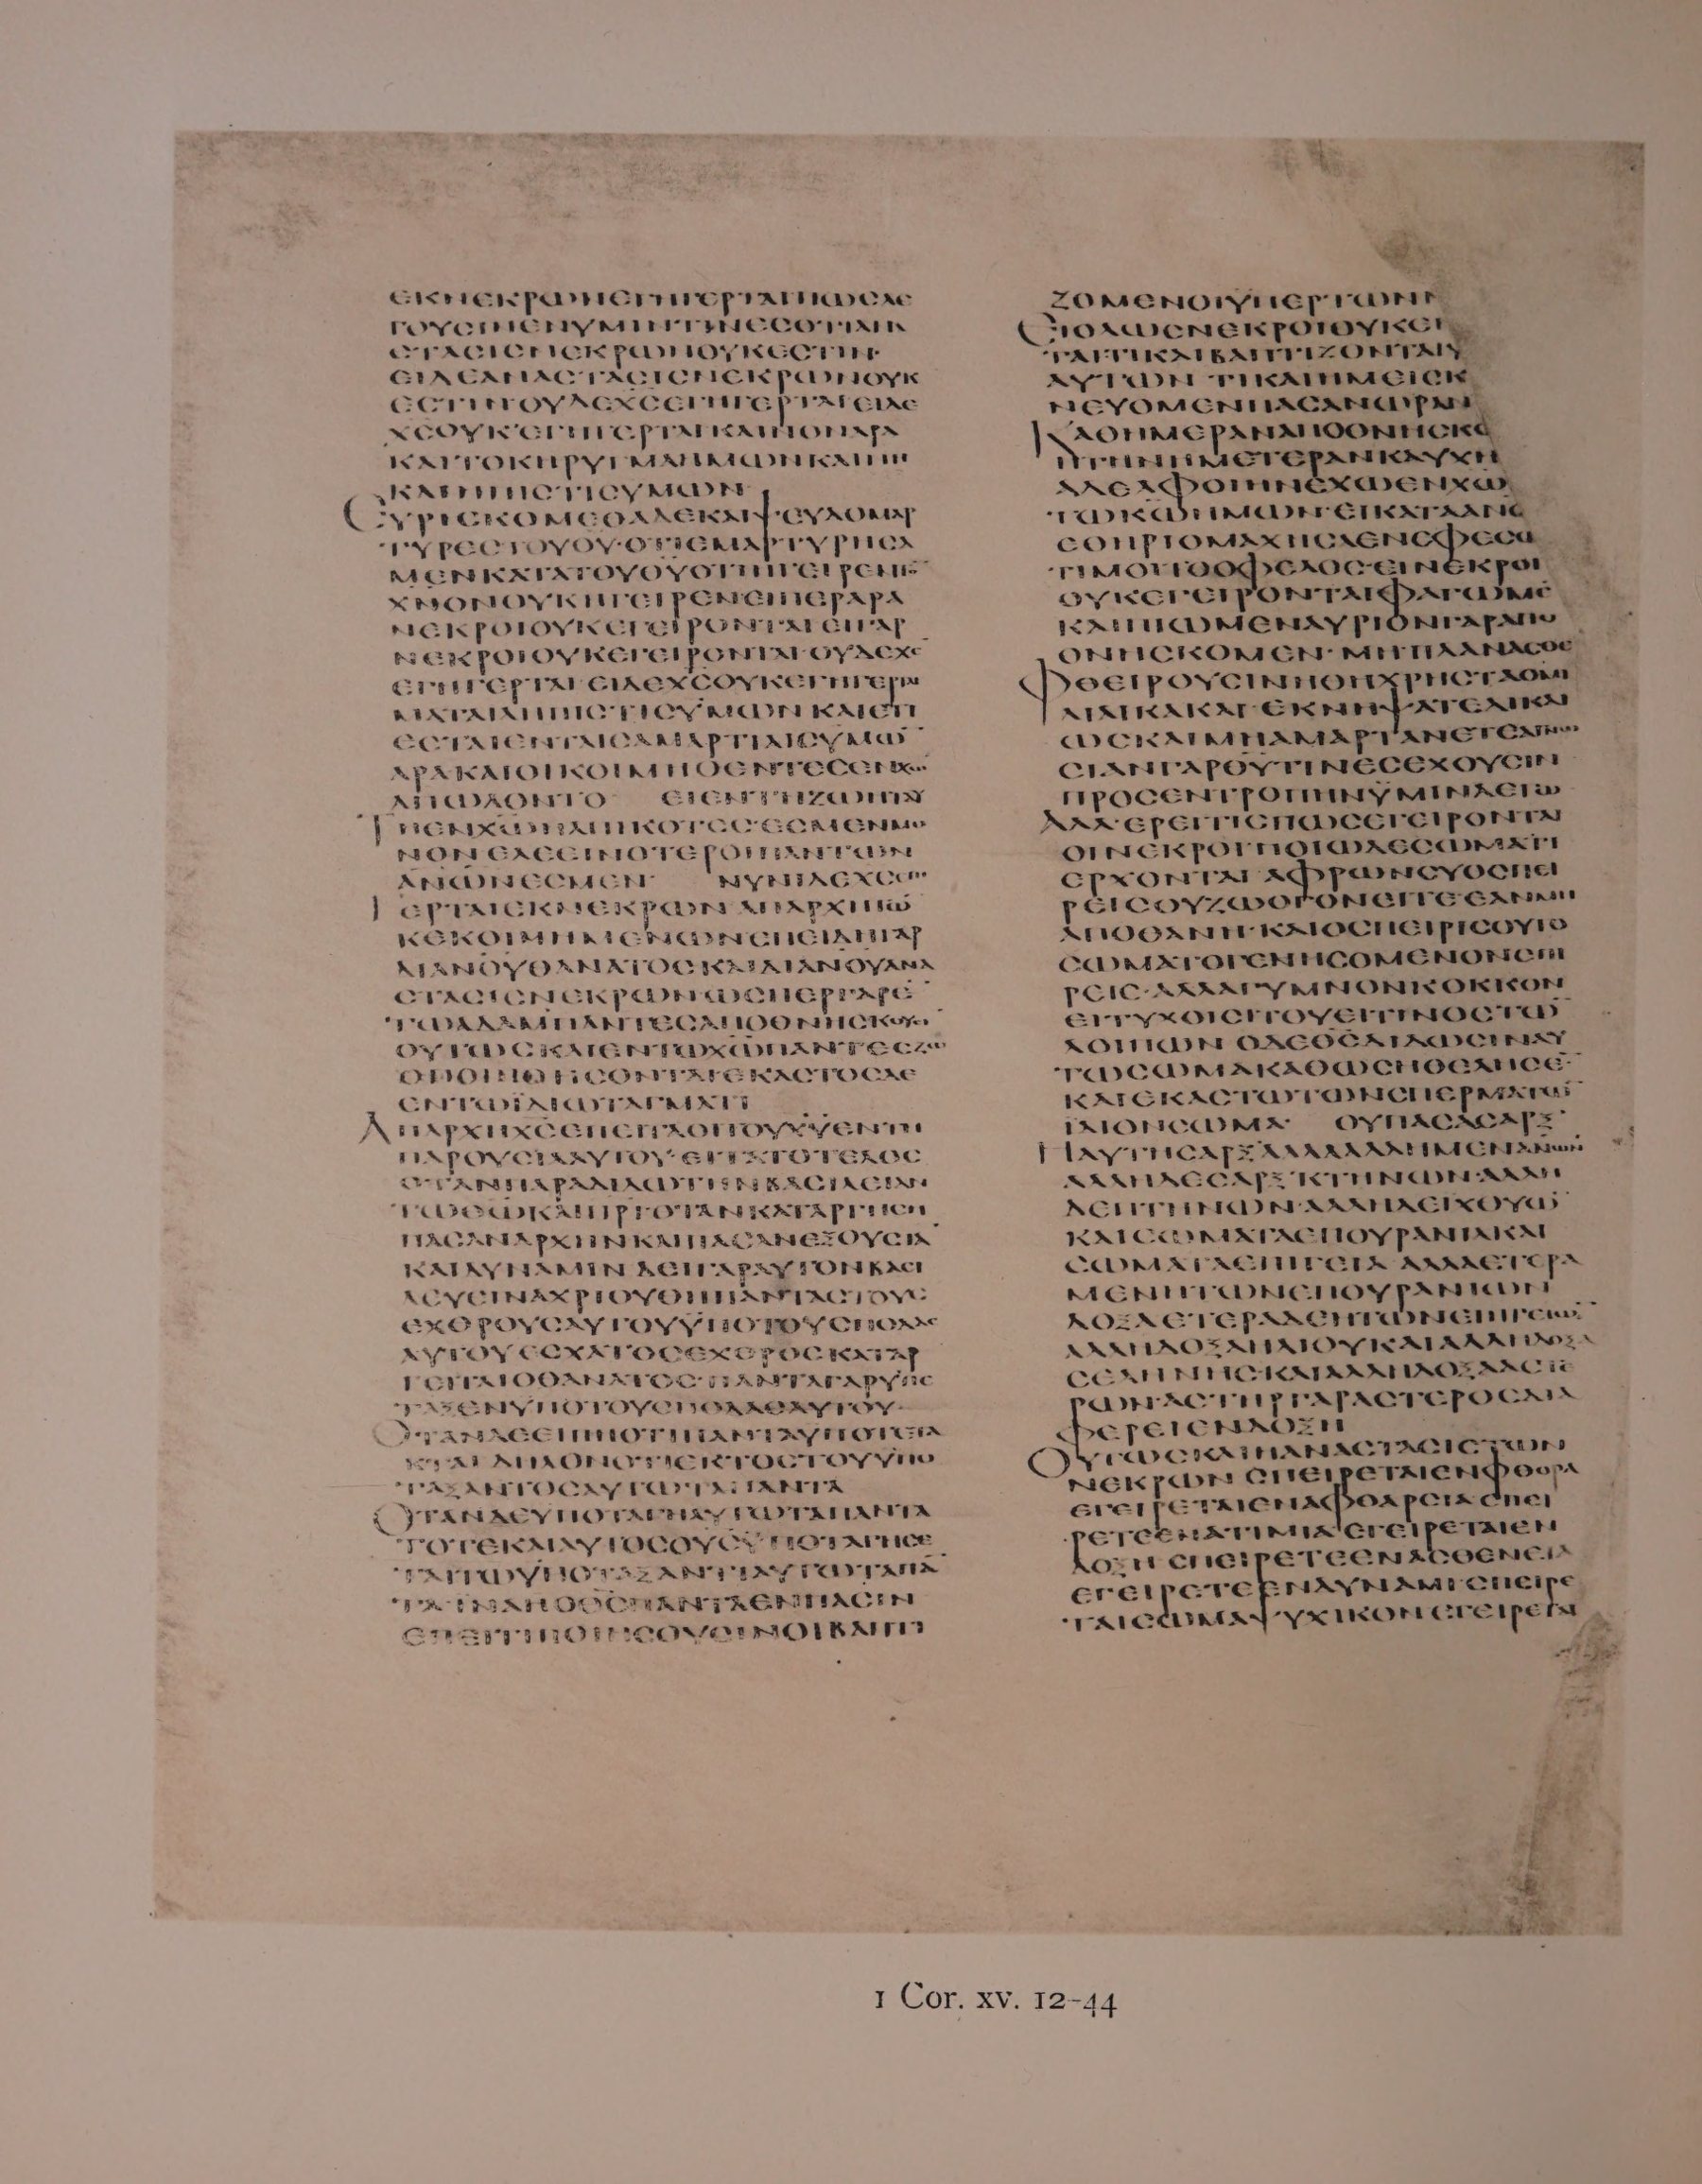 ΕΚΝΕΚΡΩΝΕΓΗΓΕΡΤΑΙΠΩCΛΕ
ΓΟΥCΙΝΕΝΥΜΙΝΤΙΝΕCΟΤΙΑΝΑ
CΤΑCΙCΝΕΚΡΩΝΟΥΚΕCΤΙΝ·
ΕΙΔΕΑΝΑCΤΑCΙCΝΕΚΡΩΝΟΥΚ
ΕCΤΙΝΟΥΔΕΧCΕΓΗΓΕΡΤΑΙ ΕΙΔΕ
ΧCΟΥΚΕΓΗΓΕΡΤΑΙΚΑΙΝΟΝΑΡΑ
ΚΑΙΤΟΚΗΡΥΓΜΑΗΜΩΝΚΑΙΝΗ
ΚΑΙΗΠΙCΤΙCΥΜΩΝ
ΕΥΡΙCΚΟΜΕΘΑΔΕΚΑΙΨΕΥΔΟΜΑΡ
ΤΥΡΕCΤΟΥΘΥ·ΟΤΙΕΜΑΡΤΥΡΗCΑ
ΜΕΝΚΑΤΑΤΟΥΘΥΟΤΙΗΓΕΙΡΕΝΤΟ̅
ΧΝΟΝΟΥΚΗΓΕΙΡΕΝΕΙΠΕΡΑΡΑ
ΝΕΚΡΟΙΟΥΚΕΓΕΙΡΟΝΤΑΙ ΕΙΓΑΡ
ΝΕΚΡΟΙΟΥΚΕΓΕΙΡΟΝΤΑΙ ΟΥΔΕΧC
ΕΓΗΓΕΡΤΑΙ ΕΙΔΕΧCΟΥΚΕΓΗΓΕΡΤΑΙ
ΜΑΤΑΙΑΗΠΙCΤΙCΥΜΩΝ ΚΑΙΕΤΙ
ΕCΤΑΙΕΝΤΑΙCΑΜΑΡΤΙΑΙCΥΜΩ̅
ΑΡΑΚΑΙΟΙΚΟΙΜΗΘΕΝΤΕCΕΝΧΩ
ΑΠΩΛΟΝΤΟ ΕΙΕΝΤΗΖΩΗΤΑΥ
ΤΗΕΝΧΩΗΛΠΙΚΟΤΕCΕCΜΕΝΜΟ
ΝΟΝ ΕΛΕΕΙΝΟΤΕΡΟΙΠΑΝΤΩΝ
ΑΝΩΝΕCΜΕΝ ΝΥΝΙΔΕΧCΕΓΗ
ΓΕΡΤΑΙΕΚΝΕΚΡΩΝ ΑΠΑΡΧΗΤΩ̅
ΚΕΚΟΙΜΗΜΕΝΩΝΕΠΕΙΔΗΓΑΡ
ΔΙΑΝΟΥΘΑΝΑΤΟCΚΑΙΔΙΑΝΟΥΑΝΑ
CΤΑCΙCΝΕΚΡΩΝΩCΠΕΡΓΑΡΕ̅
ΤΩΑΔΑΜΠΑΝΤΕCΑΠΟΘΝΗCΚΟΥCΙ
ΟΥΤΩCΚΑΙΕΝΤΩΧΩΠΑΝΤΕCΖΩ
ΟΠΟΙΗΘΗCΟΝΤΑΙΕΚΑCΤΟCΔΕ
ΕΝΤΩΙΔΙΩΤΑΓΜΑΤΙ
ΑΠΑΡΧΗΧCΕΠΕΙΤΑΟΙΤΟΥΧΥΕΝΤΗ
ΠΑΡΟΥCΙΑΑΥΤΟΥ ΕΙΤΑΤΟΤΕΛΟC
ΟΤΑΝΠΑΡΑΔΙΔΩΤΗΝΒΑCΙΛΕΙΑΝ
ΤΩΘΩΚΑΙΠΡΙΟΤΑΝΚΑΤΑΡΓΗCΗ
ΠΑCΑΝΑΡΧΗΝΚΑΙΠΑCΑΝΕΞΟΥCΙΑ̅
ΚΑΙΔΥΝΑΜΙΝ ΔΕΙΓΑΡΑΥΤΟΝΒΑCΙ
ΛΕΥΕΙΝΑΧΡΙΟΥΘΗΠΑΝΤΑCΤΟΥC
ΕΧΘΡΟΥCΑΥΤΟΥΥΠΟΤΟΥCΠΟΔΑC
ΑΥΤΟΥ ΕCΧΑΤΟCΕΧΘΡΟCΚΑΤΑΡ
ΓΕΙΤΑΙΟΘΑΝΑΤΟC ΠΑΝΤΑΓΑΡΥΠΕ
ΤΑΞΕΝΥΠΟΤΟΥCΠΟΔΑCΑΥΤΟΥ·
ΟΤΑΝΔΕΕΙΠΗΟΤΙΠΑΝΤΑΥΠΟΤΕΤΑ
ΚΤΑΙ ΔΗΛΟΝΟΤΙΕΚΤΟCΤΟΥΥΠΟ
ΤΑΞΑΝΤΟCΑΥΤΩΤΑΠΑΝΤΑ
ΟΤΑΝΔΕΥΠΟΤΑΓΗΑΥΤΩΤΑΠΑΝΤΑ
ΤΟΤΕΚΑΙΑΥΤΟCΟΥCΥΠΟΤΑΓΗCΕ
ΤΑΙΤΩΥΠΟΤΑΞΑΝΤΙΑΥΤΩΤΑΠΑ̅
ΤΑ ΙΝΑΗΟΘCΠΑΝΤΑΕΝΠΑCΙΝ
ΕΠΕΙΤΙΠΟΙΗCΟΥCΙΝΟΙΒΑΠΤΙ
ΖΟΜΕΝΟΙΥΠΕΡΤΩΝΝ
ΕΙΟΛΩCΝΕΚΡΟΙΟΥΚΕΓΙ
ΤΑΙΤΙΚΑΙΒΑΠΤΙΖΟΝΤΑΙΥ
ΑΥΤΩΝ ΤΙΚΑΙΗΜΕΙCΚ
ΝΕΥΟΜΕΝΠΑCΑΝΩΡΑΝ
ΚΑΘΗΜΕΡΑΝΑΠΟΘΝΗCΚΩ
ΝΤΗΝΗΜΕΤΕΡΑΝΚΑΥΧΗ
ΑΔΕΛΦΟΙΗΝΕΧΩΕΝΧΩ
ΤΩΚΩΗΜΩΝ·ΕΙΚΑΤΑΑΝΟ
ΕΘΗΡΙΟΜΑΧΗCΑΕΝΕΦΕCΩ
ΤΙΜΟΙΤΟΟΦΕΛΟC·ΕΙΝΕΚΡΟΙ
ΟΥΚΕΓΕΙΡΟΝΤΑΙΦΑΓΩΜΕ
ΚΑΙΠΙΩΜΕΝΑΥΡΙΟΝΓΑΡΑΠΟ
ΘΝΗCΚΟΜΕΝ· ΜΗΠΛΑΝΑCΘΕ
ΦΘΕΙΡΟΥCΙΝΗΘΗΧΡΗCΤΑΟΜΙ
ΛΙΑΙΚΑΚΑΙ ΕΚΝΗΨΑΤΕΔΙΚΑΙ
ΩCΚΑΙΜΗΑΜΑΡΤΑΝΕΤΕΑΓΝΩ
CΙΑΝΓΑΡΘΥΤΙΝΕCΕΧΟΥCΙΝ
ΠΡΟCΕΝΤΡΟΠΗΝΥΜΙΝΛΕΓΩ
ΑΛΛ ΕΡΕΙΤΙCΠΩCΕΓΕΙΡΟΝΤΑΙ
ΟΙΝΕΚΡΟΙΠΟΙΩΔΕCΩΜΑΤΙ
ΕΡΧΟΝΤΑΙ ΑΦΡΩΝCΥΟCΠΕΙ
ΡΕΙCΟΥΖΩΟΓΟΝΕΙΤΕ ΕΑΝΜΗ
ΑΠΟΘΑΝΗ·ΚΑΙΟCΠΕΙΡΙCΟΥΤΟ
CΩΜΑΤΟΓΕΝΗCΟΜΕΝΟΝCΠΙ
ΡΕΙC·ΑΛΛΑΓΥΜΝΟΝΚΟΚΚΟΝ
ΕΙΤΥΧΟΙCΙΤΟΥΕΙΤΙΝΟCΤΩ̅
ΛΟΙΠΩΝ ΟΔΕΘCΔΙΔΩCΙΝΑΥ
ΤΩCΩΜΑΚΑΘΩCΗΘΕΛΗCΕ
ΚΑΙΕΚΑCΤΩΤΩΝCΠΕΡΜΑΤΩ̅
ΙΔΙΟΝCΩΜΑ· ΟΥΠΑCΑCΑΡΞ
ΗΑΥΤΗCΑΡΞΑΛΛΑΑΛΛΗΜΕΝΑΝΩΝ
ΑΛΛΗΔΕCΑΡΞ ΚΤΗΝΩΝ·ΑΛΛΗ
ΔΕΠΤΗΝΩΝ·ΑΛΛΗΔΕΙΧΘΥΩ̅
ΚΑΙCΩΜΑΤΑΕΠΟΥΡΑΝΙΑΚΑΙ
CΩΜΑΤΑΕΠΙΓΕΙΑ ΑΛΛΑΕΤΕΡΑ
ΜΕΝΗΤΩΝΕΠΟΥΡΑΝΙΩΝ
ΔΟΞΑΕΤΕΡΑΔΕΗΤΩΝΕΠΙΓΕΙΩ̅
ΑΛΛΗΔΟΞΑΗΛΙΟΥΚΑΙΑΛΛΗΔΟΞΑ
CΕΛΗΝΗC·ΚΑΙΑΛΛΗΔΟΞΑΑCΤΕ
ΡΩΝ·ΑCΤΗΡΓΑΡΑCΤΕΡΟCΔΙΑ
ΦΕΡΕΙΕΝΔΟΞΗ
ΟΥΤΩCΚΑΙΗΑΝΑCΤΑCΙCΤΩΝ
ΝΕΚΡΩΝ CΠΕΙΡΕΤΑΙΕΝΦΘΟΡΑ
ΕΓΕΙΡΕΤΑΙΕΝΑΦΘΑΡCΙΑ CΠΕΙ
ΡΕΤΕΕΝΑΤΙΜΙΑ ΕΓΕΙΡΕΤΑΙΕΝ
ΔΟΞΗ CΠΕΙΡΕΤΕΕΝΑCΘΕΝΕΙΑ
ΕΓΕΙΡΕΤΕΕΝΔΥΝΑΜΙ CΠΕΙΡΕ
ΤΑΙCΩΜΑΨΥΧΙΚΟΝ ΕΓΕΙΡΕΤΑΙ
1 Cor. xv. 12-44